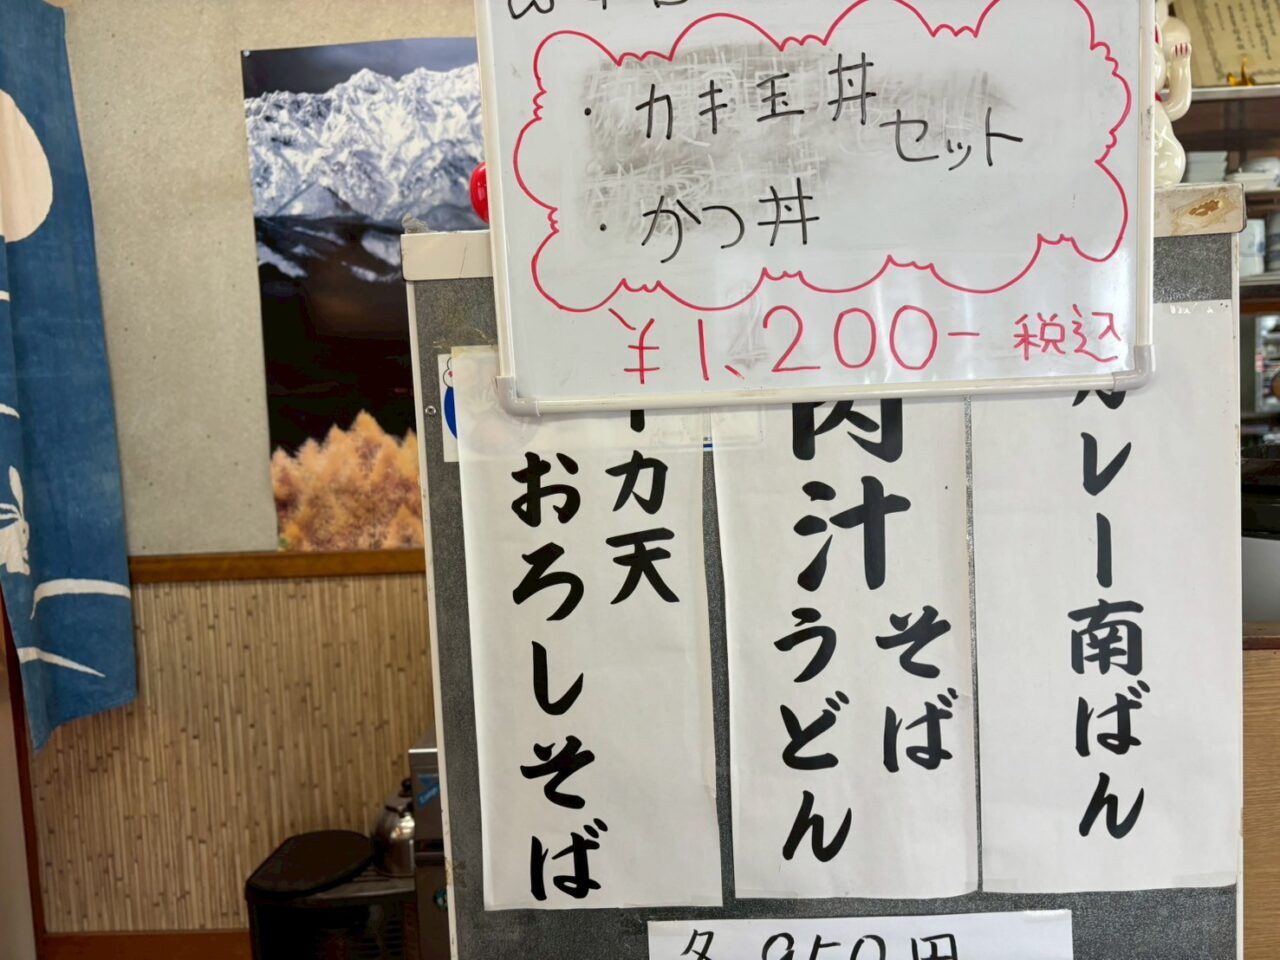 ・カキ玉丼セット
・かつ丼
¥1,200- 税込
カレー南ばん
肉汁
そば
うどん
カ天
おろしそば
各950円